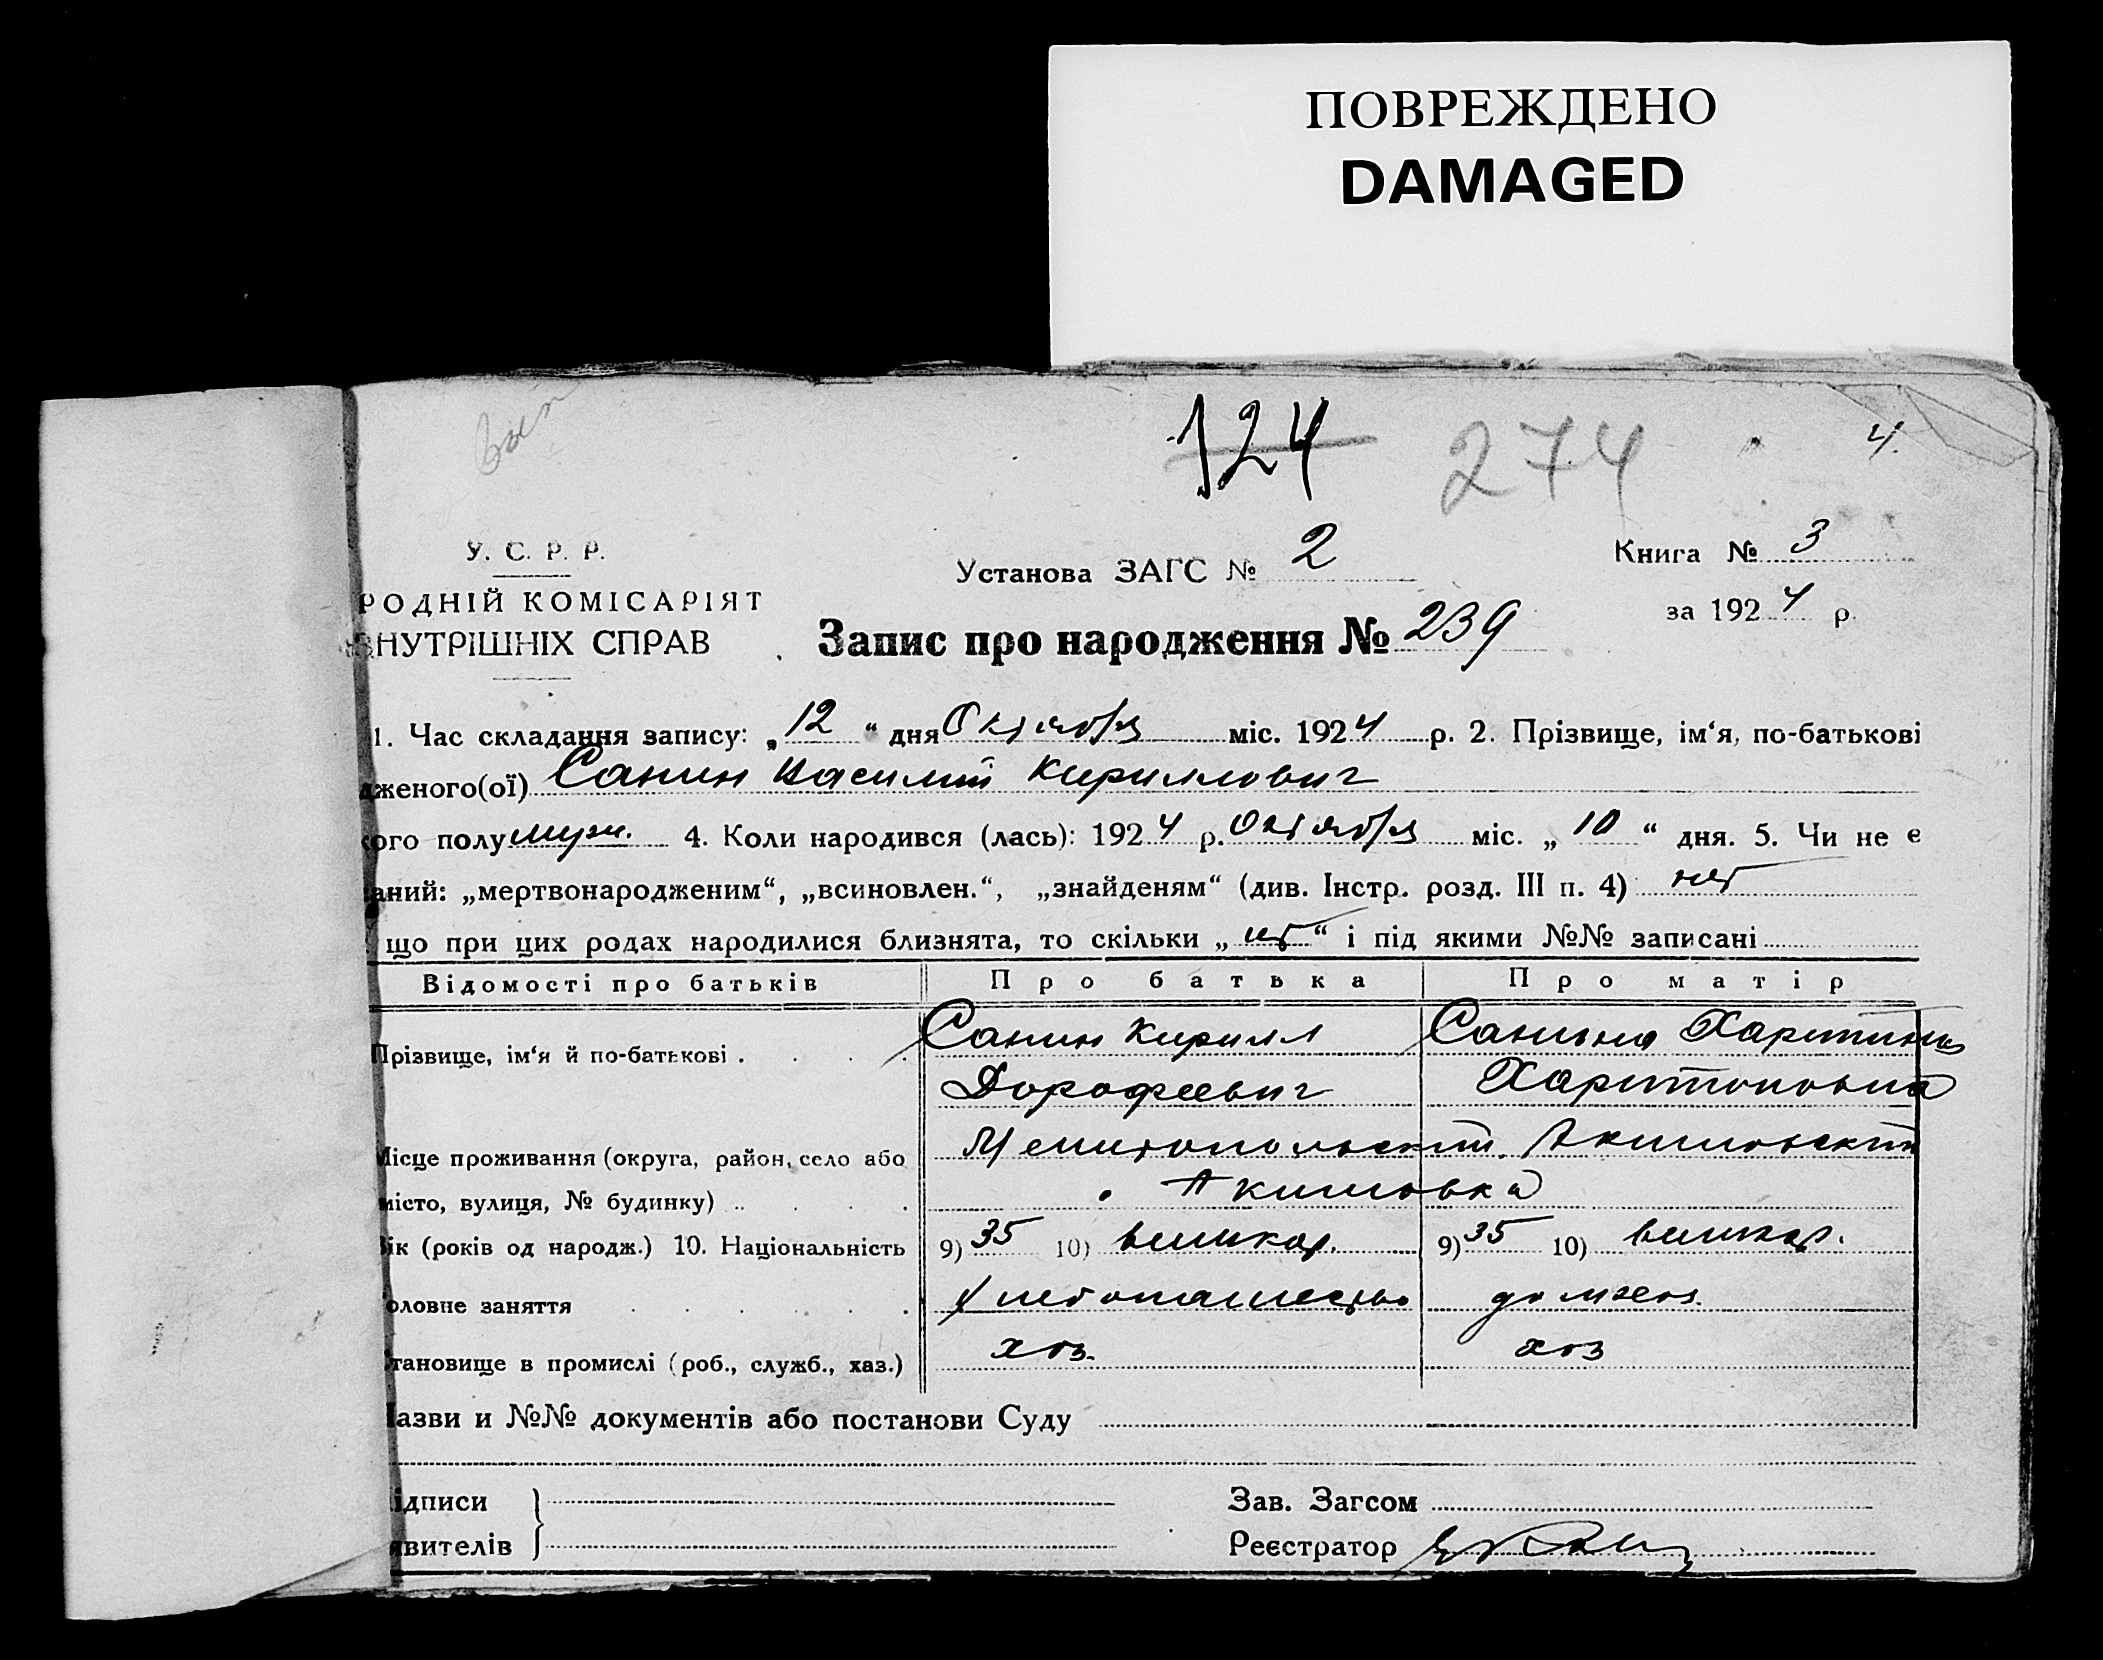 ПОВРЕЖДЕНО
DAMAGED
124 274 4.
У. С. Р. Р.
РОДНІЙ КОМІСАРІЯТ
ВНУТРІШНІХ СПРАВ
Установа ЗАГС № 2
Книга № 3
за 1924 р.
Запис про народження № 239
1. Час складання запису: „12“ дня Октября міс. 1924 р. 2. Прізвище, ім‘я, по-батькові
дженого(ої) Санин Василий Кириллович
кого полу муж. 4. Коли народився (лась): 1924 р. Октября міс. „10“ дня. 5. Чи не є
аний: „мертвонародженим“, „всиновлен.“, „знайденям“ (див. Інстр. розд. III п. 4) нет
що при цих родах народилися близнята, то скільки „нет“ і під якими №№ записані
Відомості про батьків Про батька Про матір
Прізвище, ім‘я й по-батькові . . . . Санин Кирилл Санина Харитина
Дорофеевич Харитоновна
Місце проживання (округа, район, село або Мелитопольский. Акимовский
місто, вулиця, № будинку) .. . . . Акимовка
Вік (років од народж.) 10. Національність 9) 35 10) великор. 9) 35 10) великор.
оловне заняття . . . . . . хлебопашество домхоз.
тановище в промислі (роб., служб., хаз.) хоз. хоз
Назви и №№ документів або постанови Суду
ідписи Зав. Загсом
явителів Реєстратор